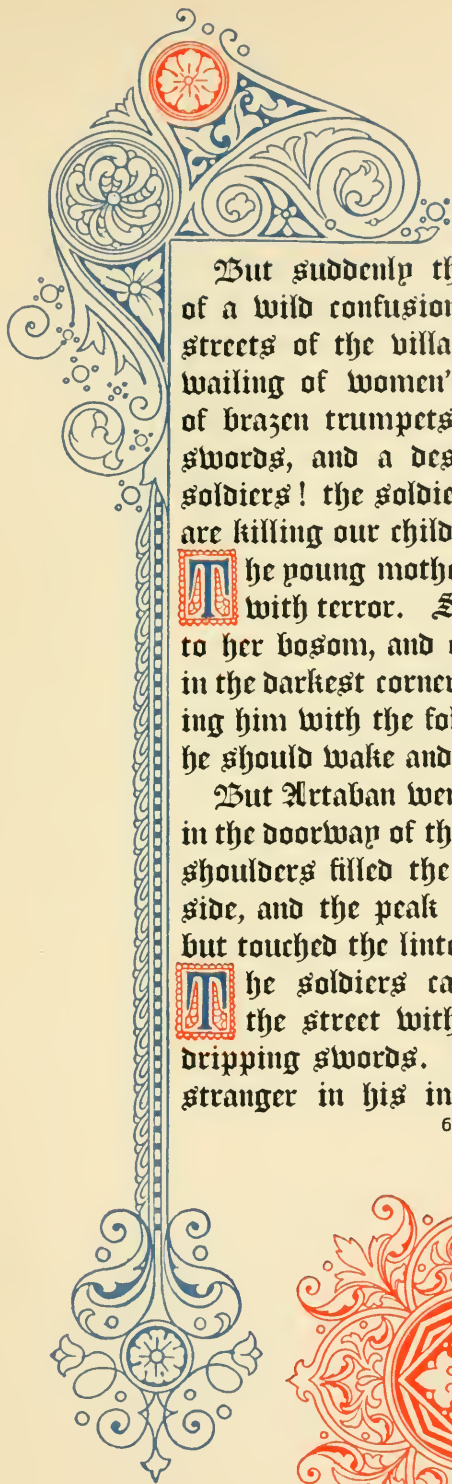 But suddenly th
of a wild confusion
streets of the villa
wailing of women'
of brazen trumpets
swords, and a des
soldiers! the soldie
are killing our child
The young mothe
with terror. S
to her bosom, and c
in the darkest corner
ing him with the fol
he should wake and
But Artaban wen
in the doorway of th
shoulders filled the
side, and the peak
but touched the linte
The soldiers ca
the street with
dripping swords.
stranger in his in
6